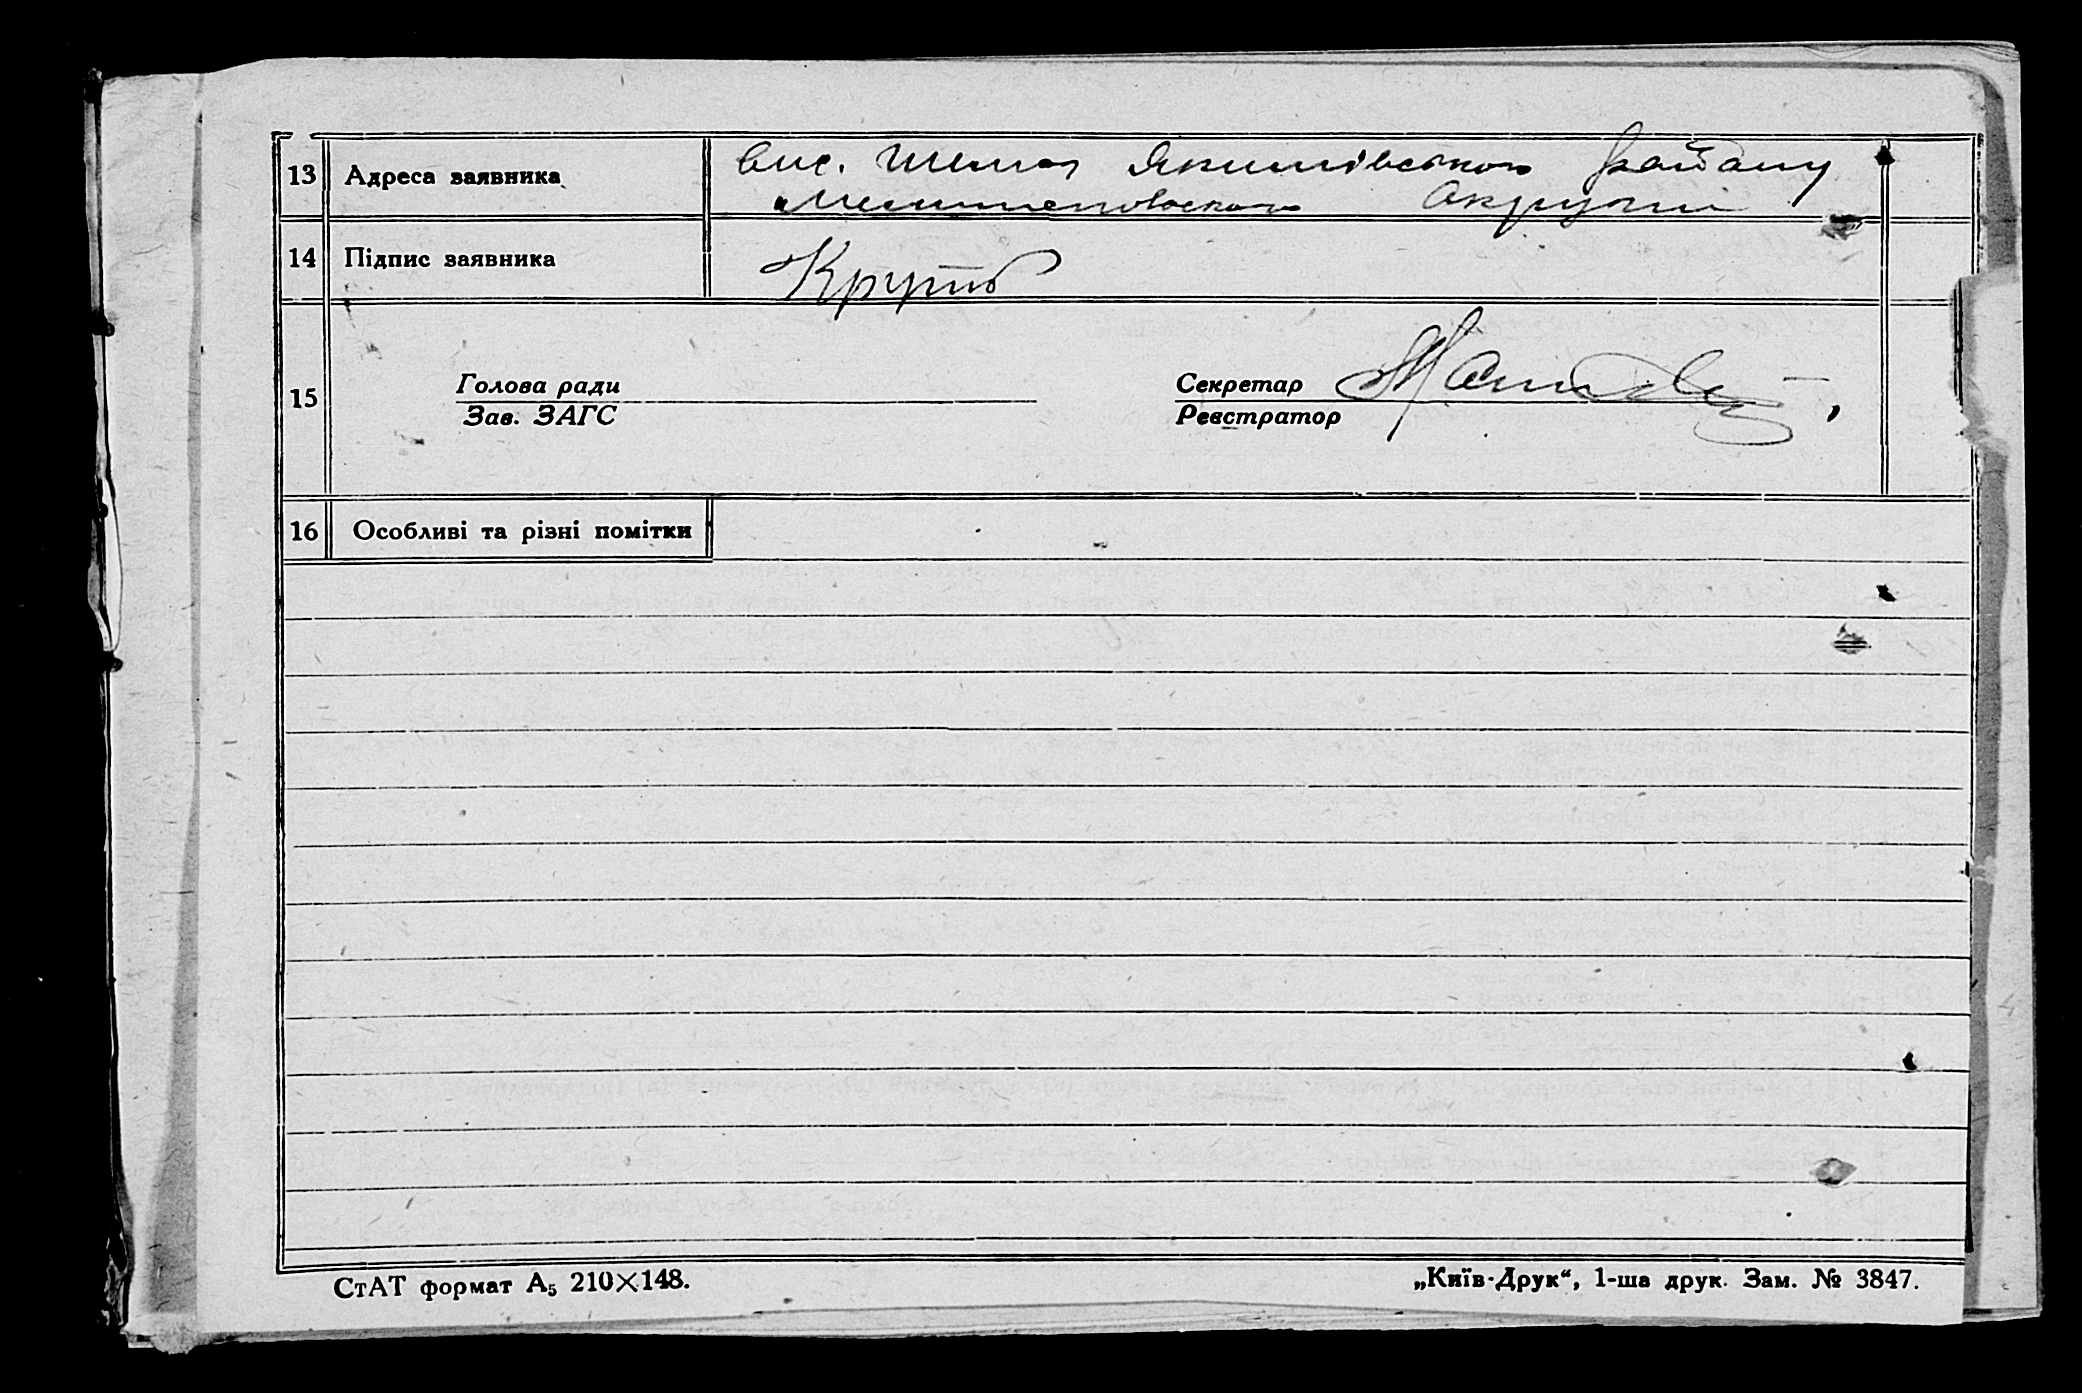 13 Адреса заявника вис. Якимівського району
Мелитопольского Округи
14 Підпис заявника
15 Голова ради Секретар
Зав. ЗАГС Реєстратор
16 Особливі та різні помітки
СтАТ формат А₅ 210×148.
„Київ-Друк“, 1-ша друк. Зам. № 3847.